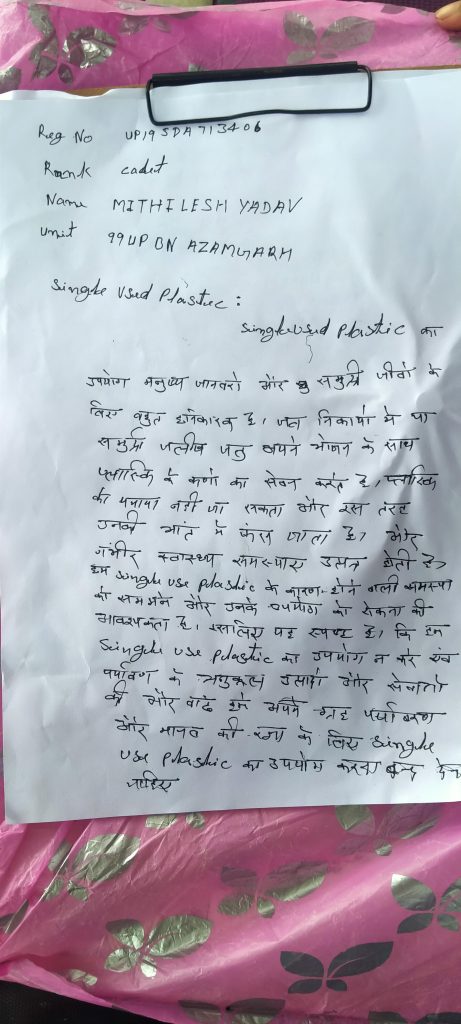 Reg No UP19SDA713406
Rank cadet
Name MITHILESH YADAV
Unit 99 UP BN AZAMGARH
Single Used Plastic :
Single used Plastic का
उपयोग मनुष्य जानवरो और समुद्री जीवो के
लिए बहुत हानिकारक है, जल निकायो मे या
समुद्री जलीय जंतु अपने भोजन के साथ
प्लास्टिक के कणो का सेवन करते है, प्लास्टिक
को पचाया नही जा सकता और इस तरह
उनकी आंत मे फंस जाता है, और
गंभीर स्वास्थ्य समस्याए उत्पन्न होती है,
हम single use plastic के कारण होने वाली समस्या
को समझने और उनके उपयोग को रोकना की
आवश्यकता है, इसलिए यह स्पष्ट है, कि हम
Single use plastic का उपयोग न करे एवं
पर्यावण के अनुकूल और
की और बढे हमे अपने ग्रह पर्यावरण
और मानव की रक्षा के लिए single
use plastic का उपयोग करना बन्द देना
चाहिए